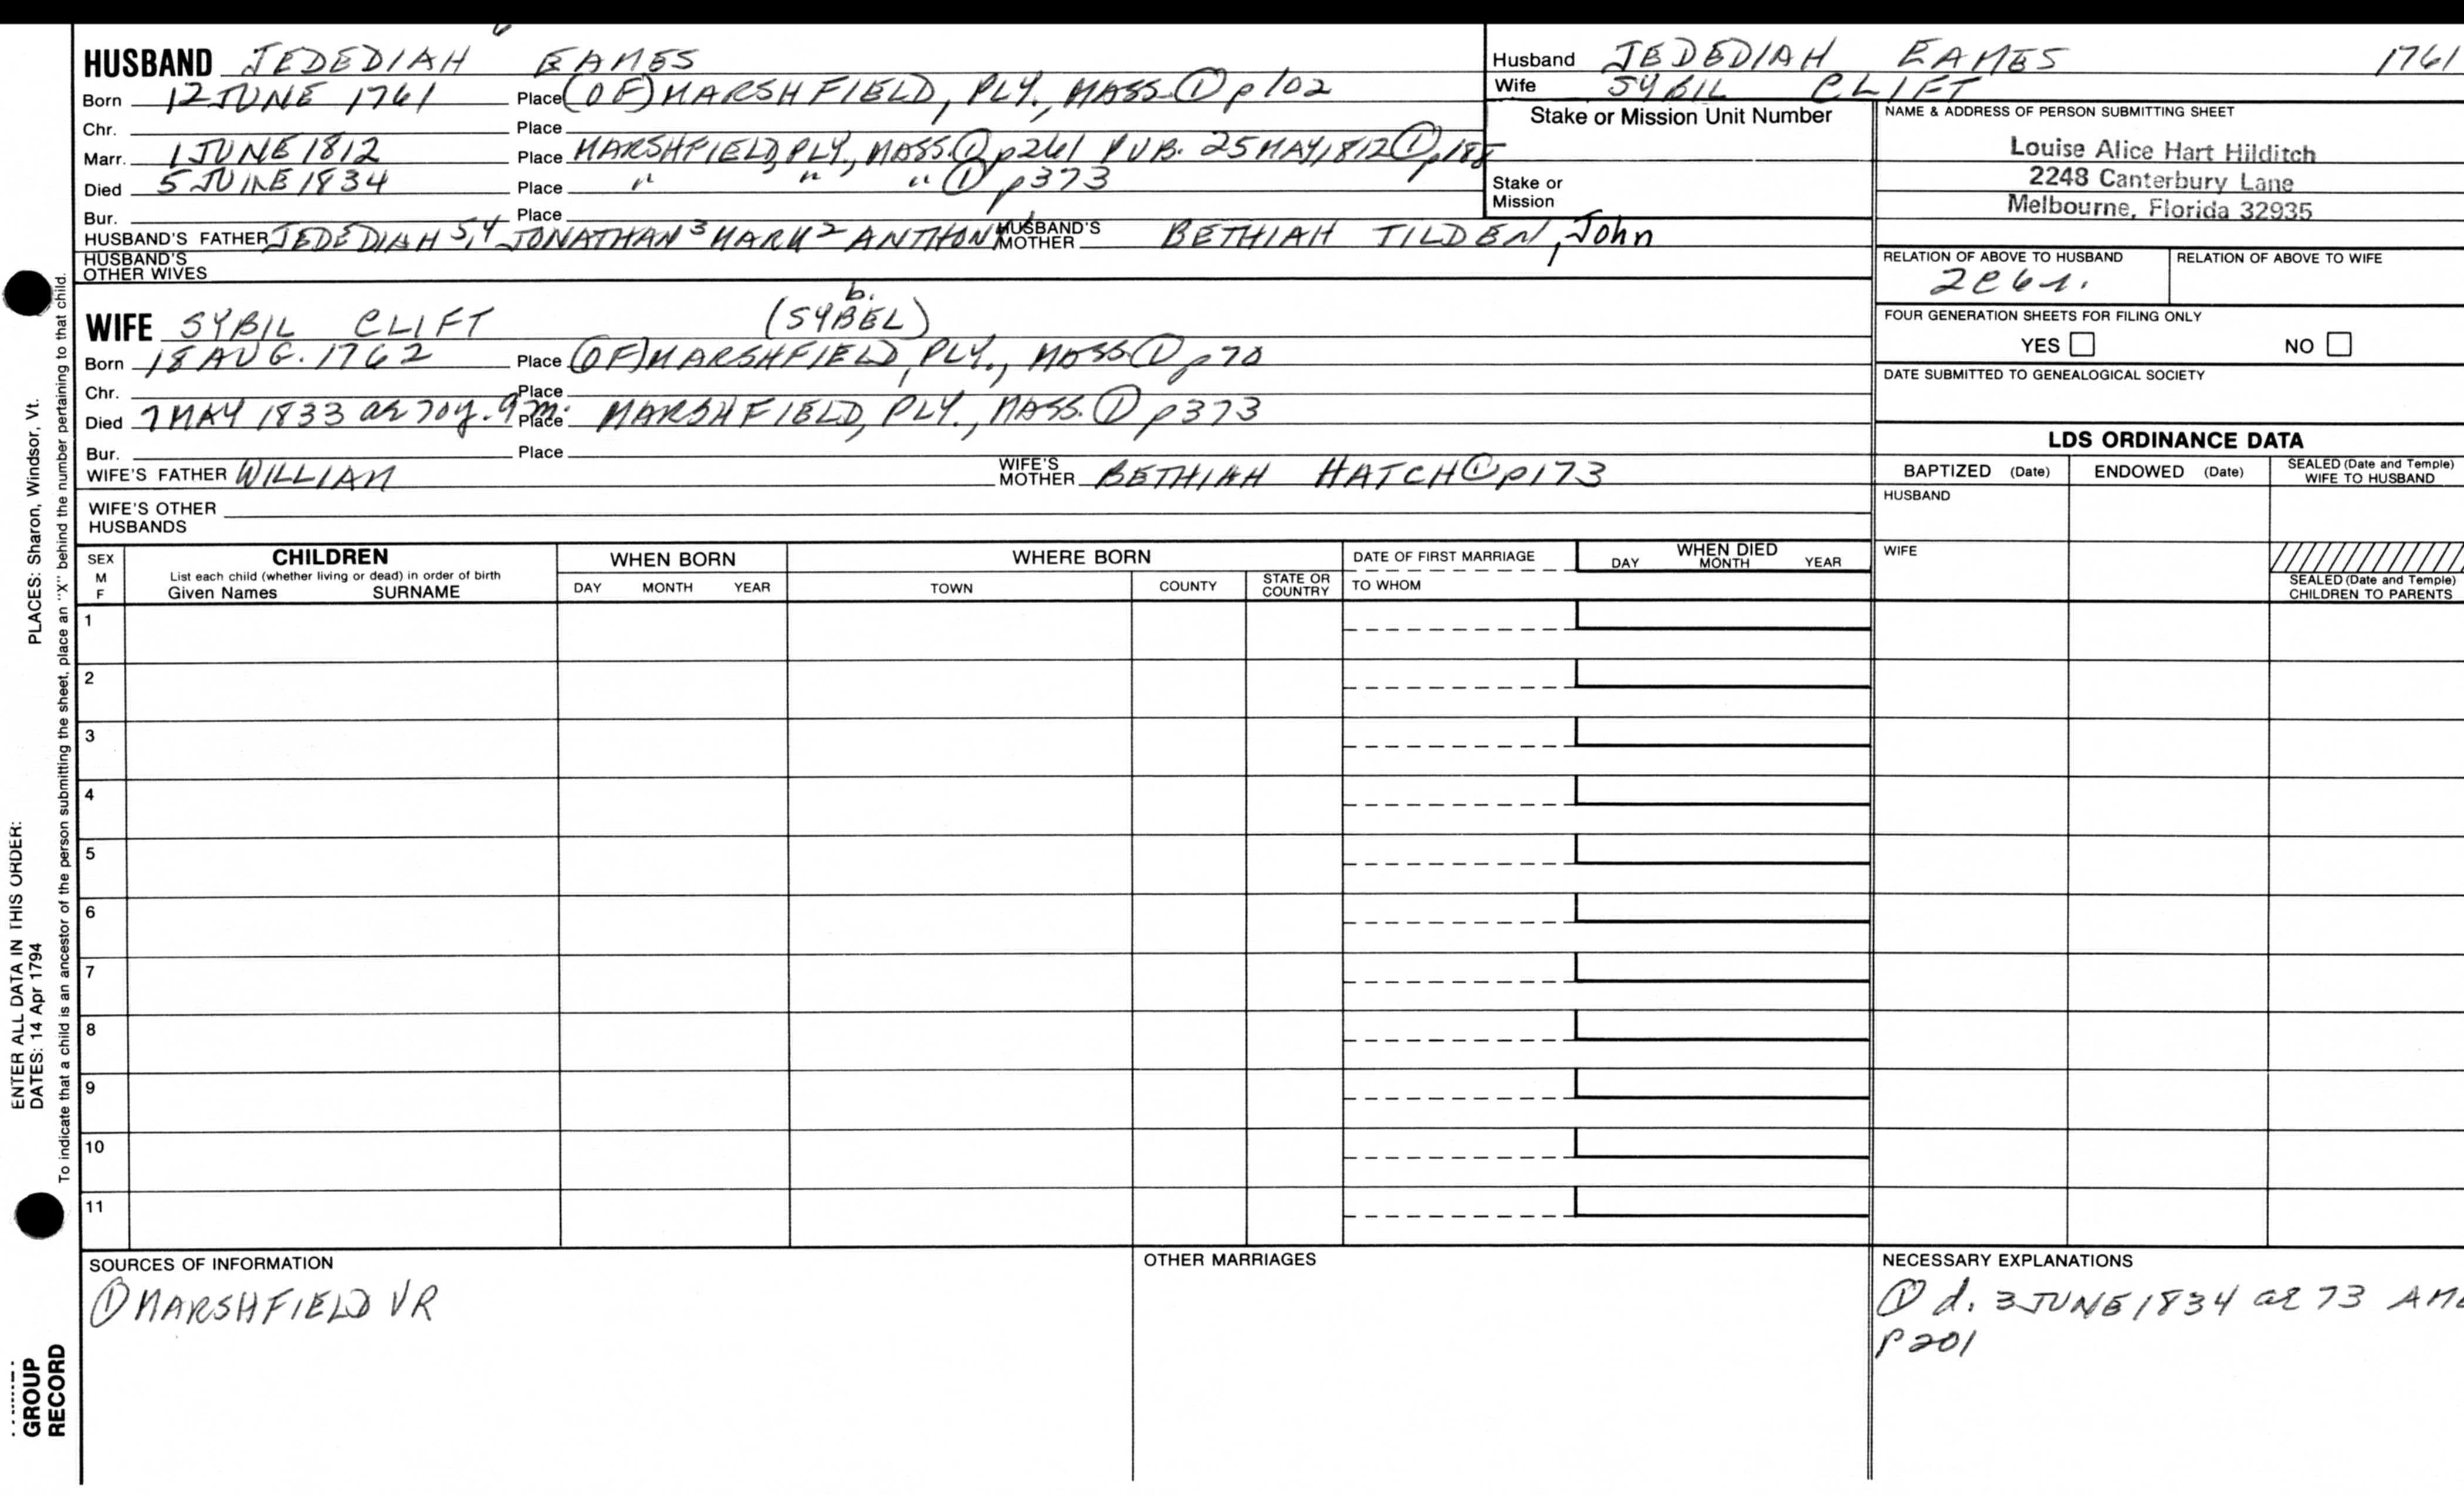 6
HUSBAND JEDEDIAH EAMES
Born 12 JUNE 1761 Place (OF) MARSHFIELD, PLY., MASS. ① p102
Chr. Place
Marr. 1 JUNE 1812 Place MARSHFIELD, PLY., MASS. ① p261 PUB. 25 MAY 1812 ① p188
Died 5 JUNE 1834 Place " " " ① p373
Bur. Place
HUSBAND'S FATHER JEDEDIAH 5,4 JONATHAN 3 MARK 2 ANTHONY 1 HUSBAND'S MOTHER BETHIAH TILDEN, John
HUSBAND'S OTHER WIVES
Husband JEDEDIAH EAMES 1761
Wife SYBIL CLIFT
Stake or Mission Unit Number
Stake or
Mission
NAME & ADDRESS OF PERSON SUBMITTING SHEET
Louise Alice Hart Hilditch
2248 Canterbury Lane
Melbourne, Florida 32935
RELATION OF ABOVE TO HUSBAND RELATION OF ABOVE TO WIFE
2C6r.
FOUR GENERATION SHEETS FOR FILING ONLY
YES NO
DATE SUBMITTED TO GENEALOGICAL SOCIETY
b.
WIFE SYBIL CLIFT (SYBEL)
Born 18 AUG. 1762 Place (OF) MARSHFIELD, PLY., MASS ① p70
Chr. Place
Died 7 MAY 1833 ae 70y. 9m. Place MARSHFIELD, PLY., MASS. ① p373
Bur. Place
WIFE'S FATHER WILLIAM WIFE'S MOTHER BETHIAH HATCH ① p173
WIFE'S OTHER
HUSBANDS
LDS ORDINANCE DATA
BAPTIZED (Date) ENDOWED (Date) SEALED (Date and Temple) WIFE TO HUSBAND
HUSBAND
WIFE
SEALED (Date and Temple)
CHILDREN TO PARENTS
SEX M F CHILDREN WHEN BORN WHERE BORN DATE OF FIRST MARRIAGE WHEN DIED
List each child (whether living or dead) in order of birth
Given Names SURNAME DAY MONTH YEAR TOWN COUNTY STATE OR COUNTRY TO WHOM DAY MONTH YEAR
1
2
3
4
5
6
7
8
9
10
11
SOURCES OF INFORMATION
① MARSHFIELD VR
OTHER MARRIAGES
NECESSARY EXPLANATIONS
① d. 3 JUNE 1834 ae 73
p201
PLACES: Sharon, Windsor, Vt.
ENTER ALL DATA IN THIS ORDER:
DATES: 14 Apr 1794
To indicate that a child is an ancestor of the person submitting the sheet, place an "X" behind the number pertaining to that child.
GROUP
RECORD